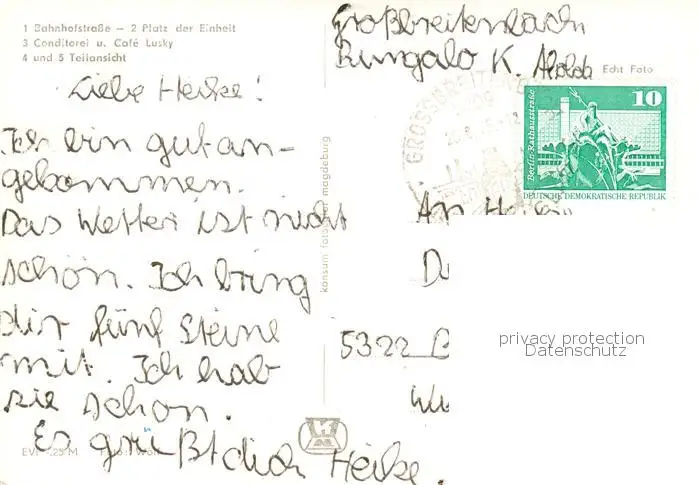 1 Bahnhofstraße – 2 Platz der Einheit
3 Conditorei u. Café Lusky
4 und 5 Teilansicht
Großbreitenbach
Bungalo K. Abels
Echt Foto
Liebe Heike!
Ich bin gut an-
gekommen.
Das Wetter ist nicht
schön. Ich bring
dir fünf Steine
mit. Ich hab
sie schon.
Es grüßt dich Heike.
konsum fotocenter magdeburg
GROSSBREITENBACH
10
Berlin-Rathausstraße
DEUTSCHE DEMOKRATISCHE REPUBLIK
An
5322
privacy protection
Datenschutz